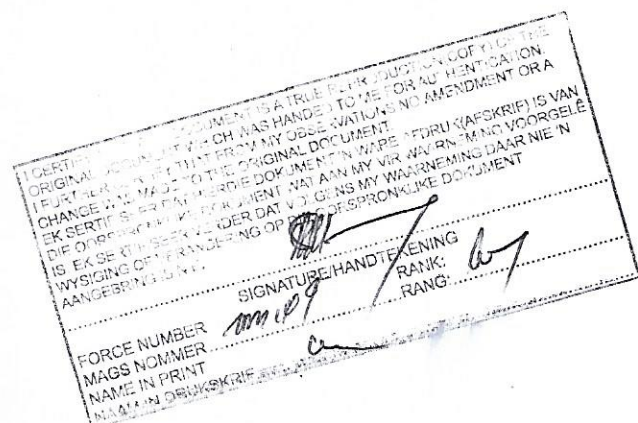 I CERTIFY DOCUMENT IS A TRUE REPRODUCTION (COPY) OF THE
ORIGINAL DOCUMENT WHICH WAS HANDED TO ME FOR AUTHENTICATION.
I FURTHER CERTIFY THAT FROM MY OBSERVATIONS NO AMENDMENT OR A
CHANGE WAS MADE TO THE ORIGINAL DOCUMENT.
EK SERTIFISEER DAT HIERDIE DOKUMENT 'N WARE AFDRUK (AFSKRIF) IS VAN
DIE OORSPRONKLIKE DOKUMENT WAT AAN MY VIR WAARNEMING VOORGELÊ
IS. EK SERTIFISEER VERDER DAT VOLGENS MY WAARNEMING DAAR NIE 'N
WYSIGING OF VERANDERING OP DIE OORSPRONKLIKE DOKUMENT
AANGEBRING IS NIE.
SIGNATURE/HANDTEKENING
FORCE NUMBER RANK:
MAGS NOMMER RANG:
NAME IN PRINT
NAAM IN DRUKSKRIF